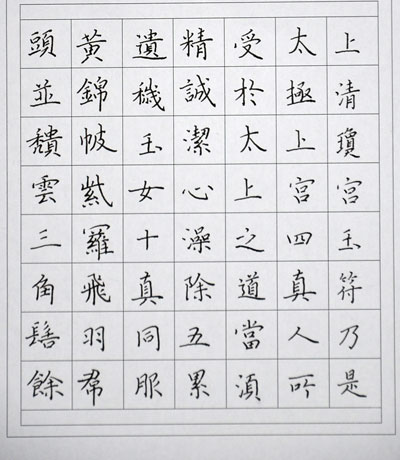 上清瓊宮玉符乃是
太極上宮四真人所
受於太上之道當湏
精誠潔心澡除五累
遺穢玉女十真同服
黃錦帔紫羅飛羽帬
頭並頽雲三角髻餘